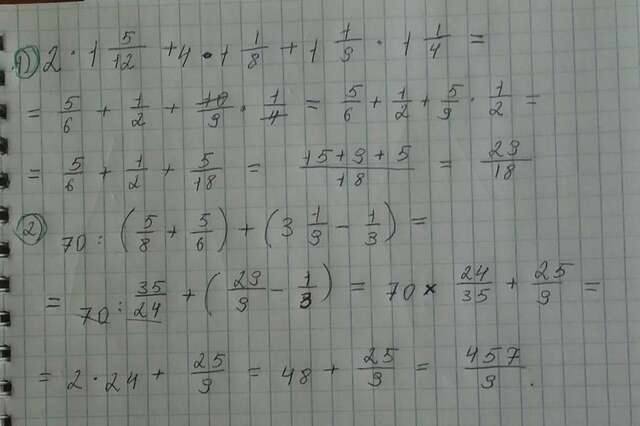 1) 2 · 1 5/12 + 4 · 1 1/8 + 1 1/9 · 1 1/4 =
= 5/6 + 1/2 + 10/9 · 1/4 = 5/6 + 1/2 + 5/9 · 1/2 =
= 5/6 + 1/2 + 5/18 = 15+9+5/18 = 29/18
2) 70 : (5/8 + 5/6) + (3 1/9 - 1/3) =
= 70 : 35/24 + (29/9 - 1/3) = 70 × 24/35 + 25/9 =
= 2 · 24 + 25/9 = 48 + 25/9 = 457/9.